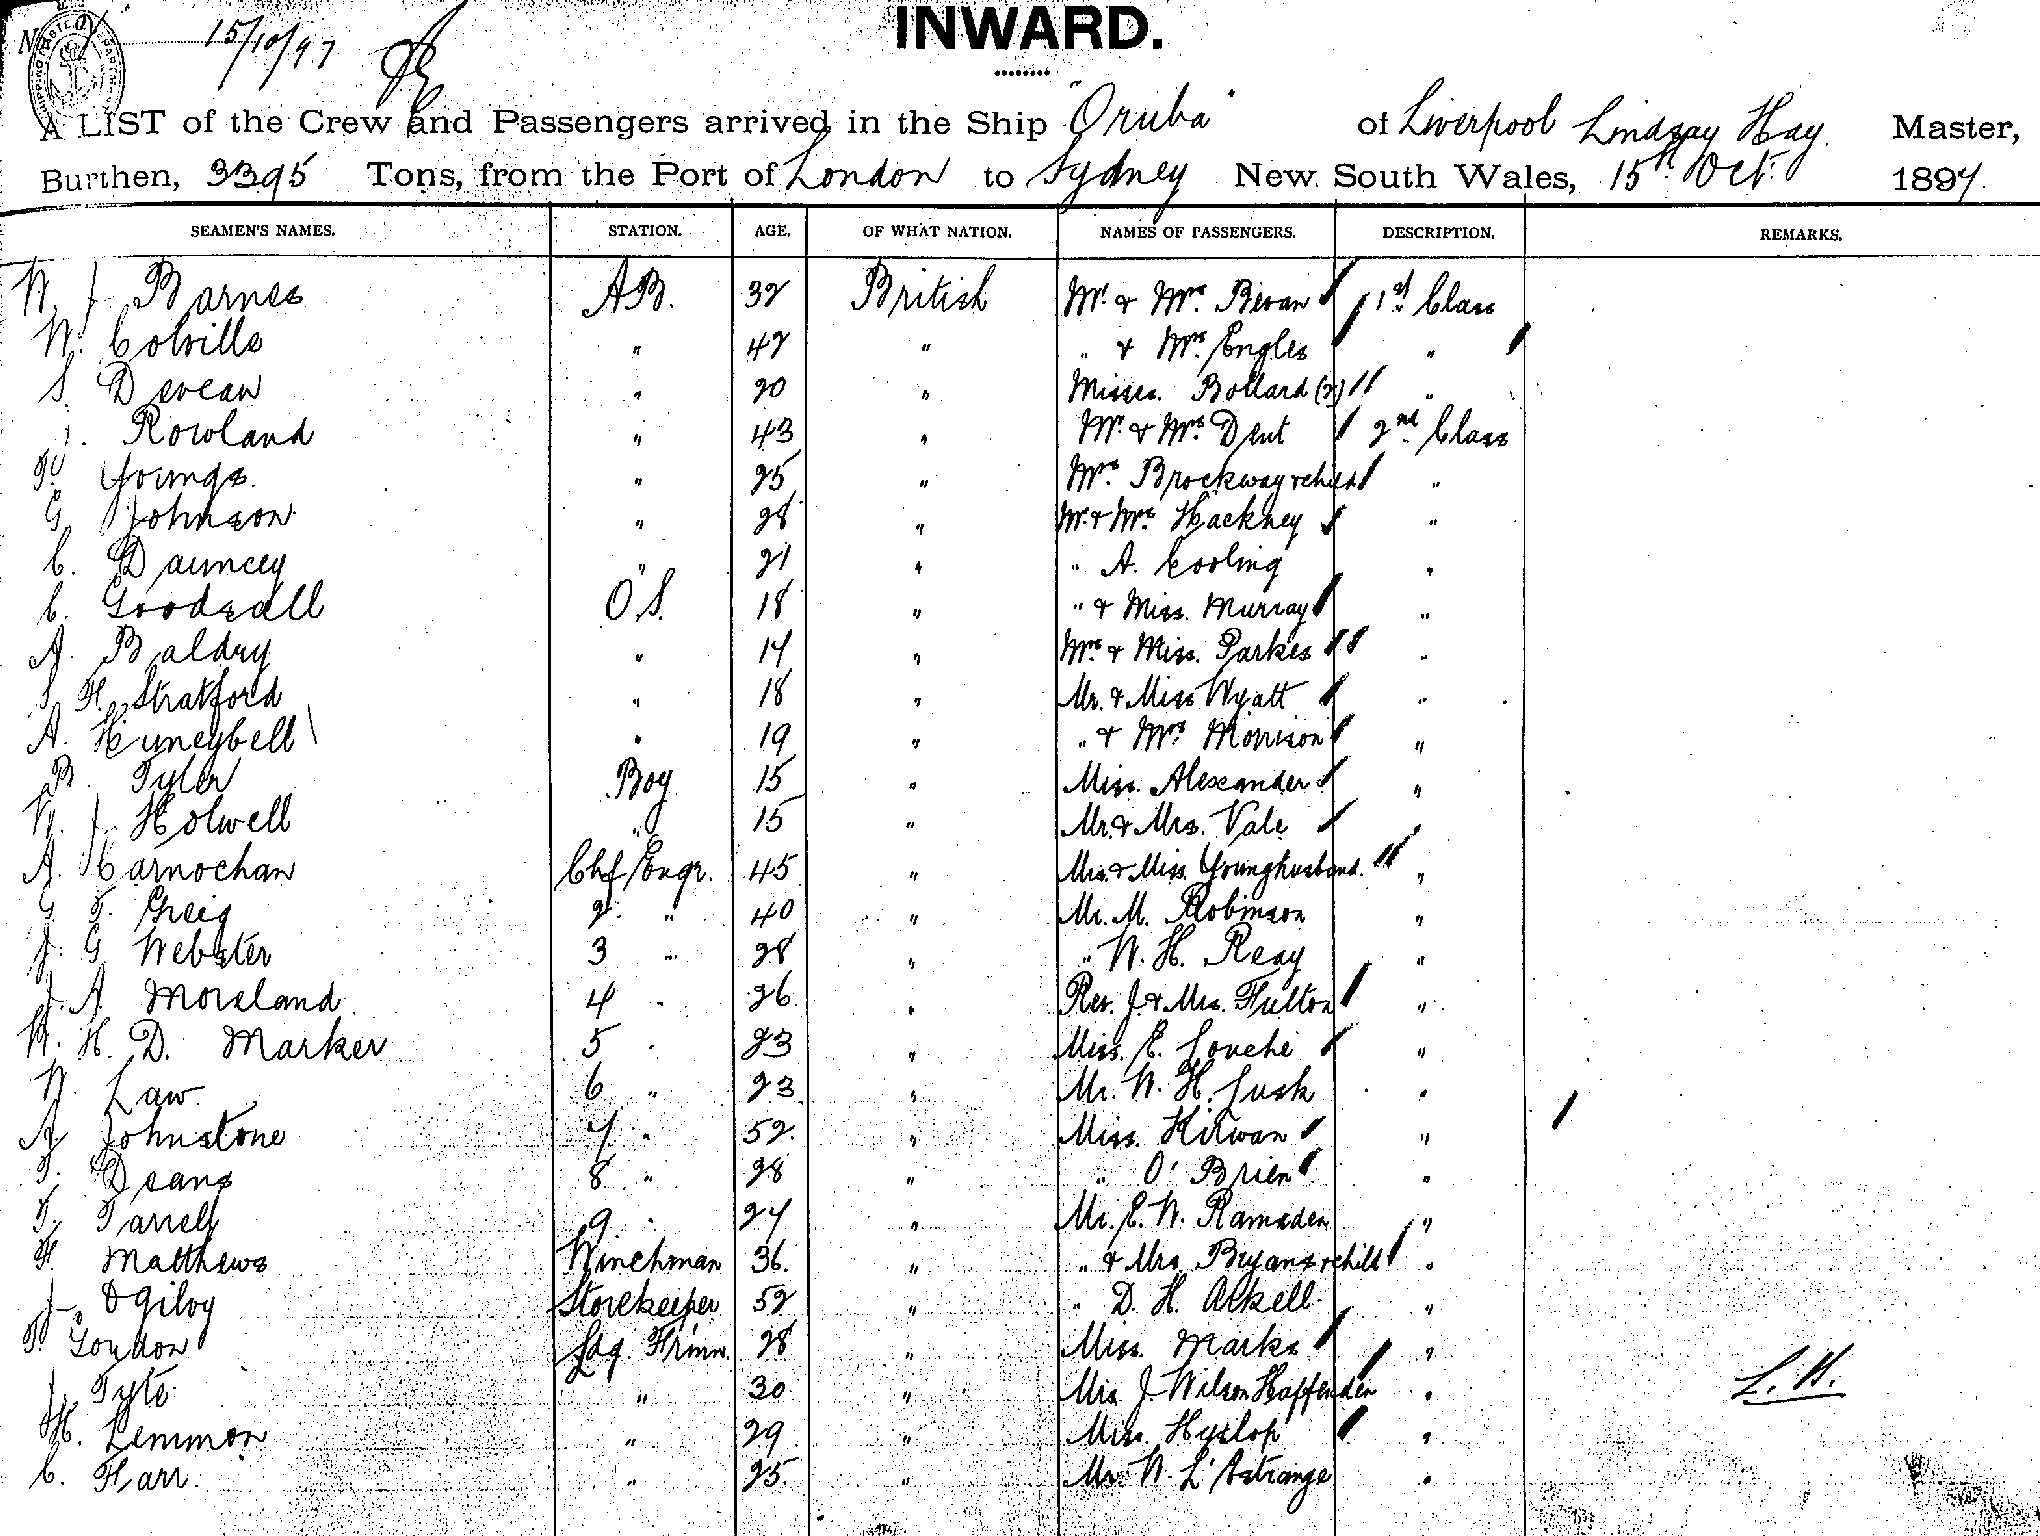 15/10/97
INWARD.
A LIST of the Crew and Passengers arrived in the Ship "Oruba" of Liverpool Lindsay Hay. Master,
Burthen, 3395 Tons, from the Port of London to Sydney New South Wales, 15th Oct. 1897.
SEAMEN'S NAMES. STATION. AGE. OF WHAT NATION. NAMES OF PASSENGERS. DESCRIPTION. REMARKS.
W. J. Barnes A.B. 32 British Mr. & Mrs. Bevan 1st Class
W. Colville " 42 " " & Mrs. Engles "
S. Devean " 20 " Misses. Bollard (2) "
J. Rowland " 43 " Mr. & Mrs. Dent 2nd Class
Youngs. " 25 " Mrs. Brockway & child "
G. Johnson " 28 " Mr. & Mrs. Hackney "
C. Dauncey " 21 " " A. Cooling "
C. Goodsall O.S. 18 " " & Miss. Murray "
A. Baldry " 17 " Mrs. & Miss. Parkes "
S. H. Stratford " 18 " Mr. & Miss Wyatt "
A. Huneybell " 19 " " & Mrs. Morrison "
B. Tyler Boy 15 " Miss. Alexander "
W. J. Holwell " 15 " Mr. & Mrs. Vale "
A. Carnochan Chf Engr. 45 " Mrs. & Miss. Younghusband. "
G. T. Greig 2. " 40 " Mr. M. Robinson "
J. G. Webster 3 " 28 " " W. H. Reay "
J. A. Moreland 4 " 26 " Rev. J. & Mrs. Fulton "
W. H. D. Marker 5 " 23 " Miss. E. Louche "
W. Law 6 " 23 " Mr. W. H. Lusk "
A. Johnstone 7 " 52 " Miss. Kirwan "
T. Deans 8 " 28 " " O'Brien "
T. Farrell 9 " 27 " Mr. E. W. Ramsden "
F. Matthews Winchman 36. " " & Mrs. Bryans & child "
J. Ogilvy Storekeeper 52 " " D. H. Arkell "
T. Loudon Ldg. Frmn. 28 " Miss. Marks "
J. Tyte " 30 " Mrs J. Wilson Haffenden "
H. Lemmon " 29 " Miss. Hyslop "
C. Harr. " 25. " Mr. W. L'Estrange "
L. H.